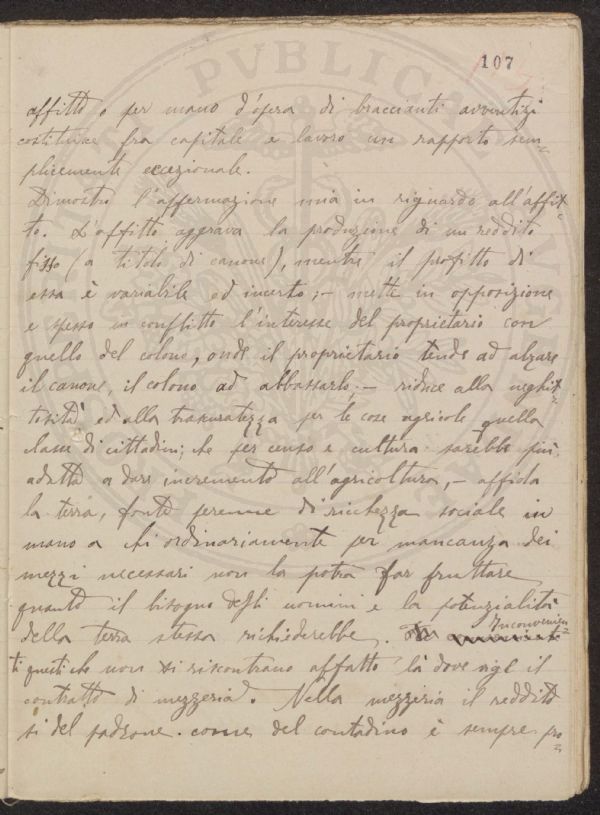 107
affitto o per mano d'opera di braccianti avventizi
costituisce fra capitale e lavoro un rapporto sem=
plicemente eccezionale.
Dimostro l'affermazione mia in riguardo all'affit=
to. L'affitto aggrava la produzione di un reddito
fisso (a titolo di canone), mentre il profitto di
essa è variabile ed incerto; – mette in opposizione
e spesso in conflitto l'interesse del proprietario con
quello del colono, onde il proprietario tende ad alzare
il canone, il colono ad abbassarlo; – riduce alla neghit=
tosità ed alla trascuratezza per le cose agricole quella
classe di cittadini, che per censo e cultura sarebbe più
adatta a dare incremento all'agricoltura, – affida
la terra, fonte perenne di ricchezza sociale in
mano a chi ordinariamente per mancanza dei
mezzi necessari non la potrà far fruttare
quanto il bisogno degli uomini e la potenzialità
della terra stessa richiederebbe. Inconvenien=
ti questi che non si riscontrano affatto là dove vige il
contratto di mezzeria. Nella mezzeria il reddito
sì del padrone come del contadino è sempre pro=